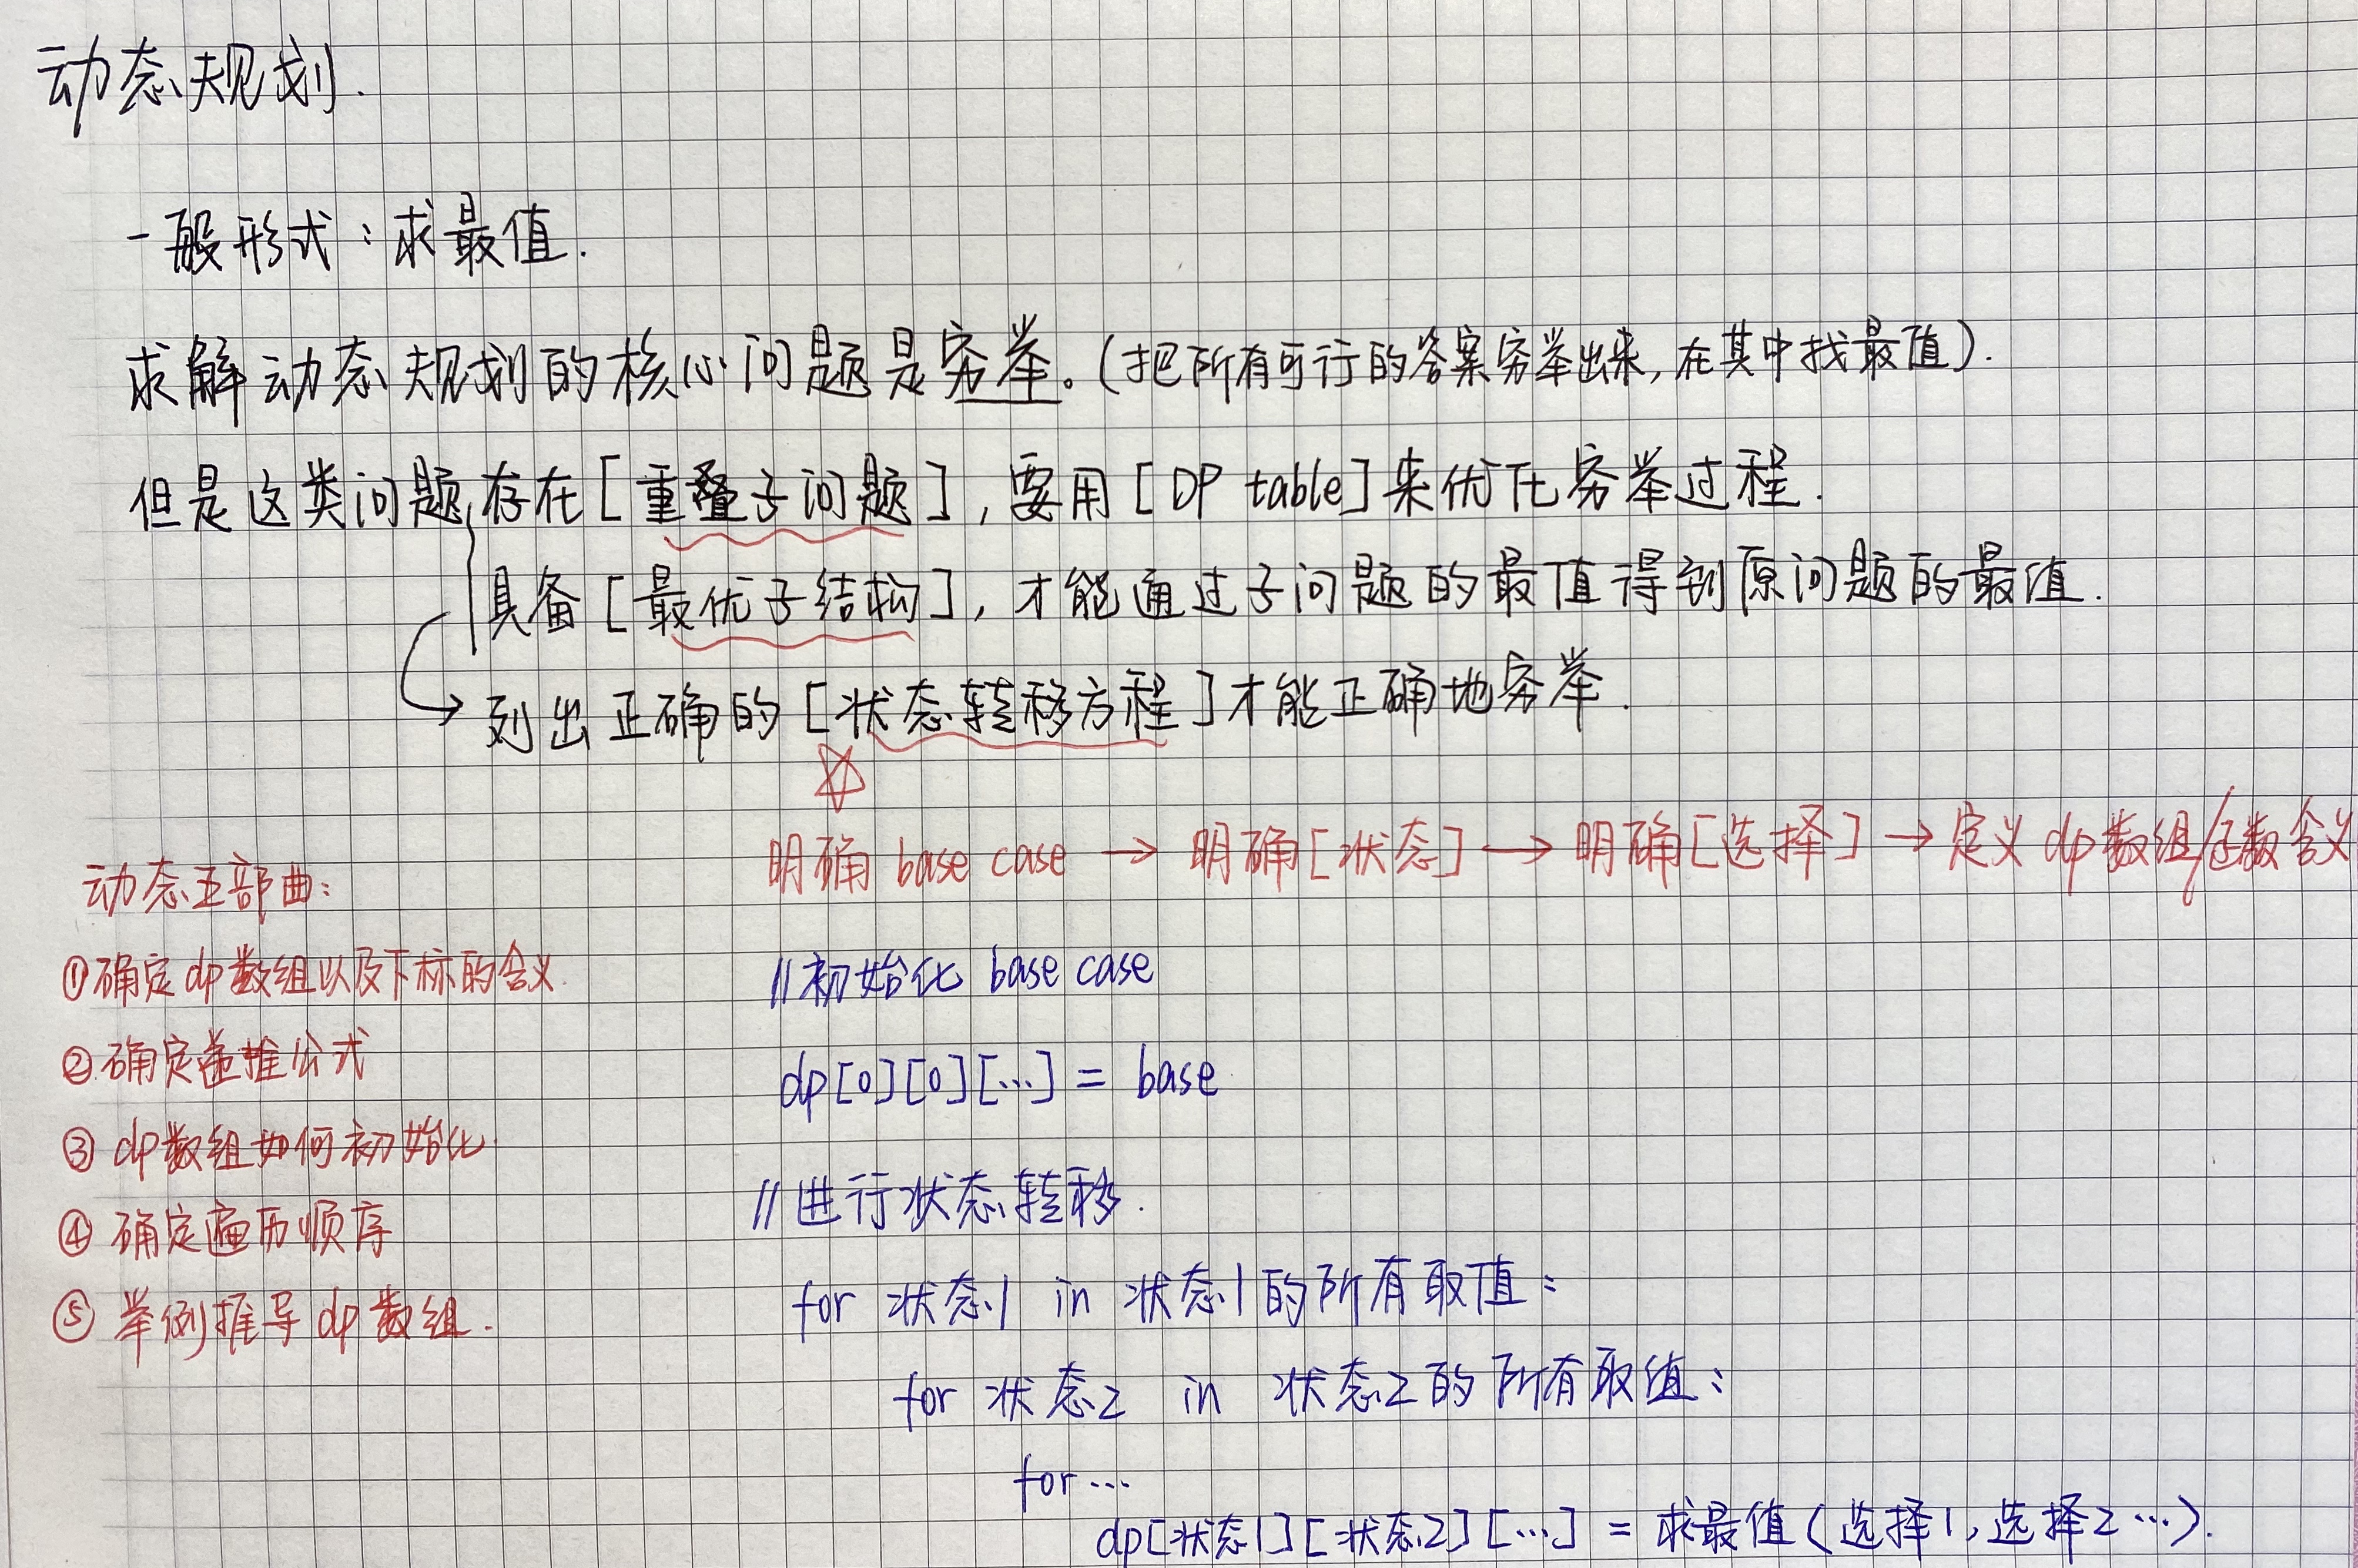 动态规划.
一般形式：求最值.
求解动态规划的核心问题是穷举。(把所有可行的答案穷举出来,在其中找最值).
但是这类问题存在[重叠子问题],要用[DP table]来优化穷举过程.
具备[最优子结构],才能通过子问题的最值得到原问题的最值.
→列出正确的[状态转移方程]才能正确地穷举.
明确 base case → 明确[状态] → 明确[选择] → 定义 dp 数组/函数含义
动态五部曲:
①确定dp数组以及下标的含义
②确定递推公式
③dp数组如何初始化
④确定遍历顺序
⑤举例推导dp数组.
//初始化 base case
dp[0][0][…] = base
//进行状态转移.
for 状态1 in 状态1的所有取值:
for 状态2 in 状态2的所有取值:
for …
dp[状态1][状态2][…] = 求最值(选择1,选择2…).